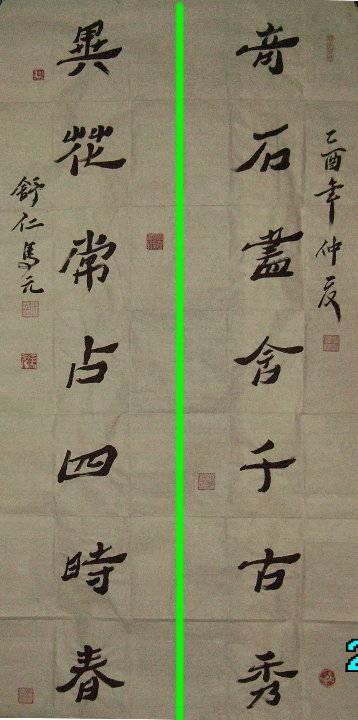 乙酉年仲夏
竒石蓋含千古秀
異花常占四時春
舒仁馬元
2